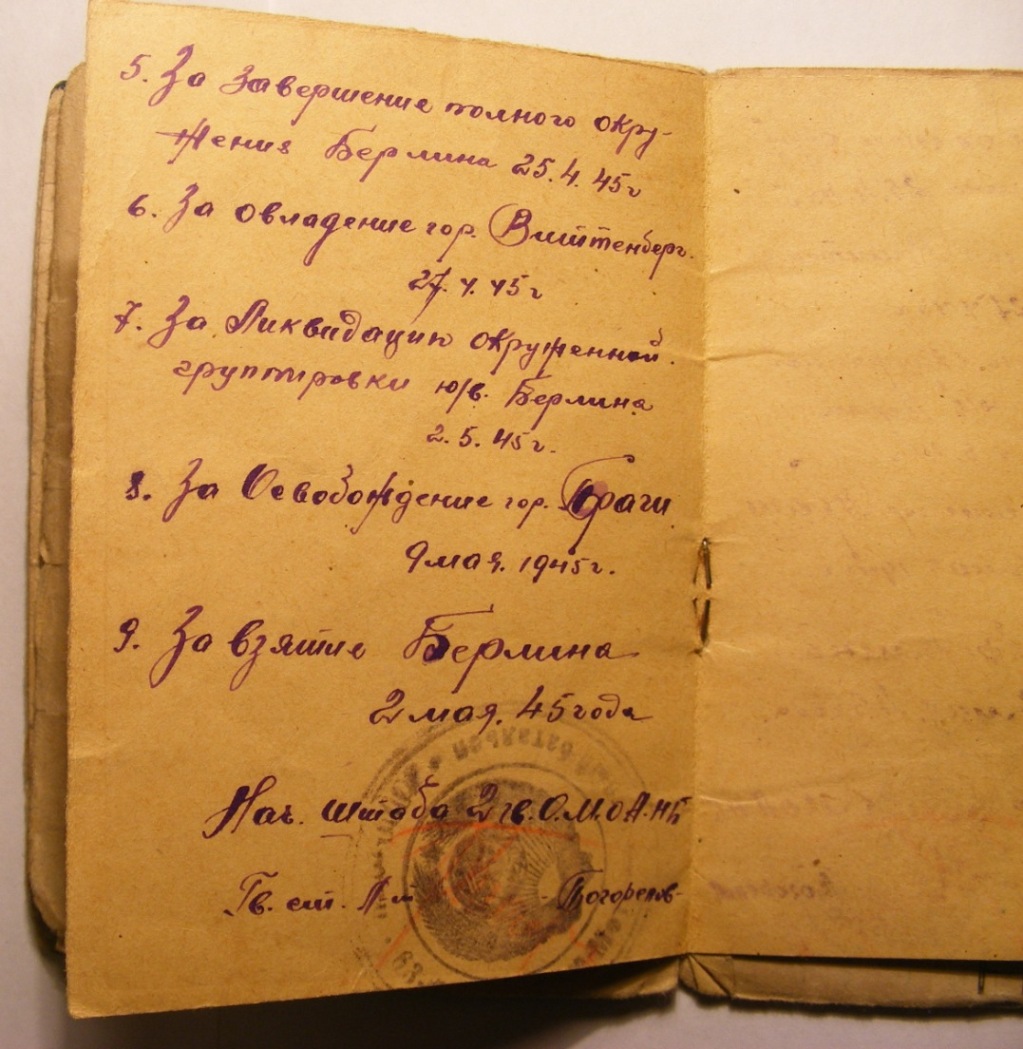 5. За завершение полного окру-
жения Берлина 25.4.45г
6. За овладение гор. Виттенберг.
27.4.45г
7. За Ликвидацию окруженной.
группировки ю/в. Берлина
2.5.45г.
8. За Освобождение гор. Праги
9 мая. 1945г.
9. За взятие Берлина
2 мая. 45 года
Нач. штаба 2 гв.
Гв. ст.